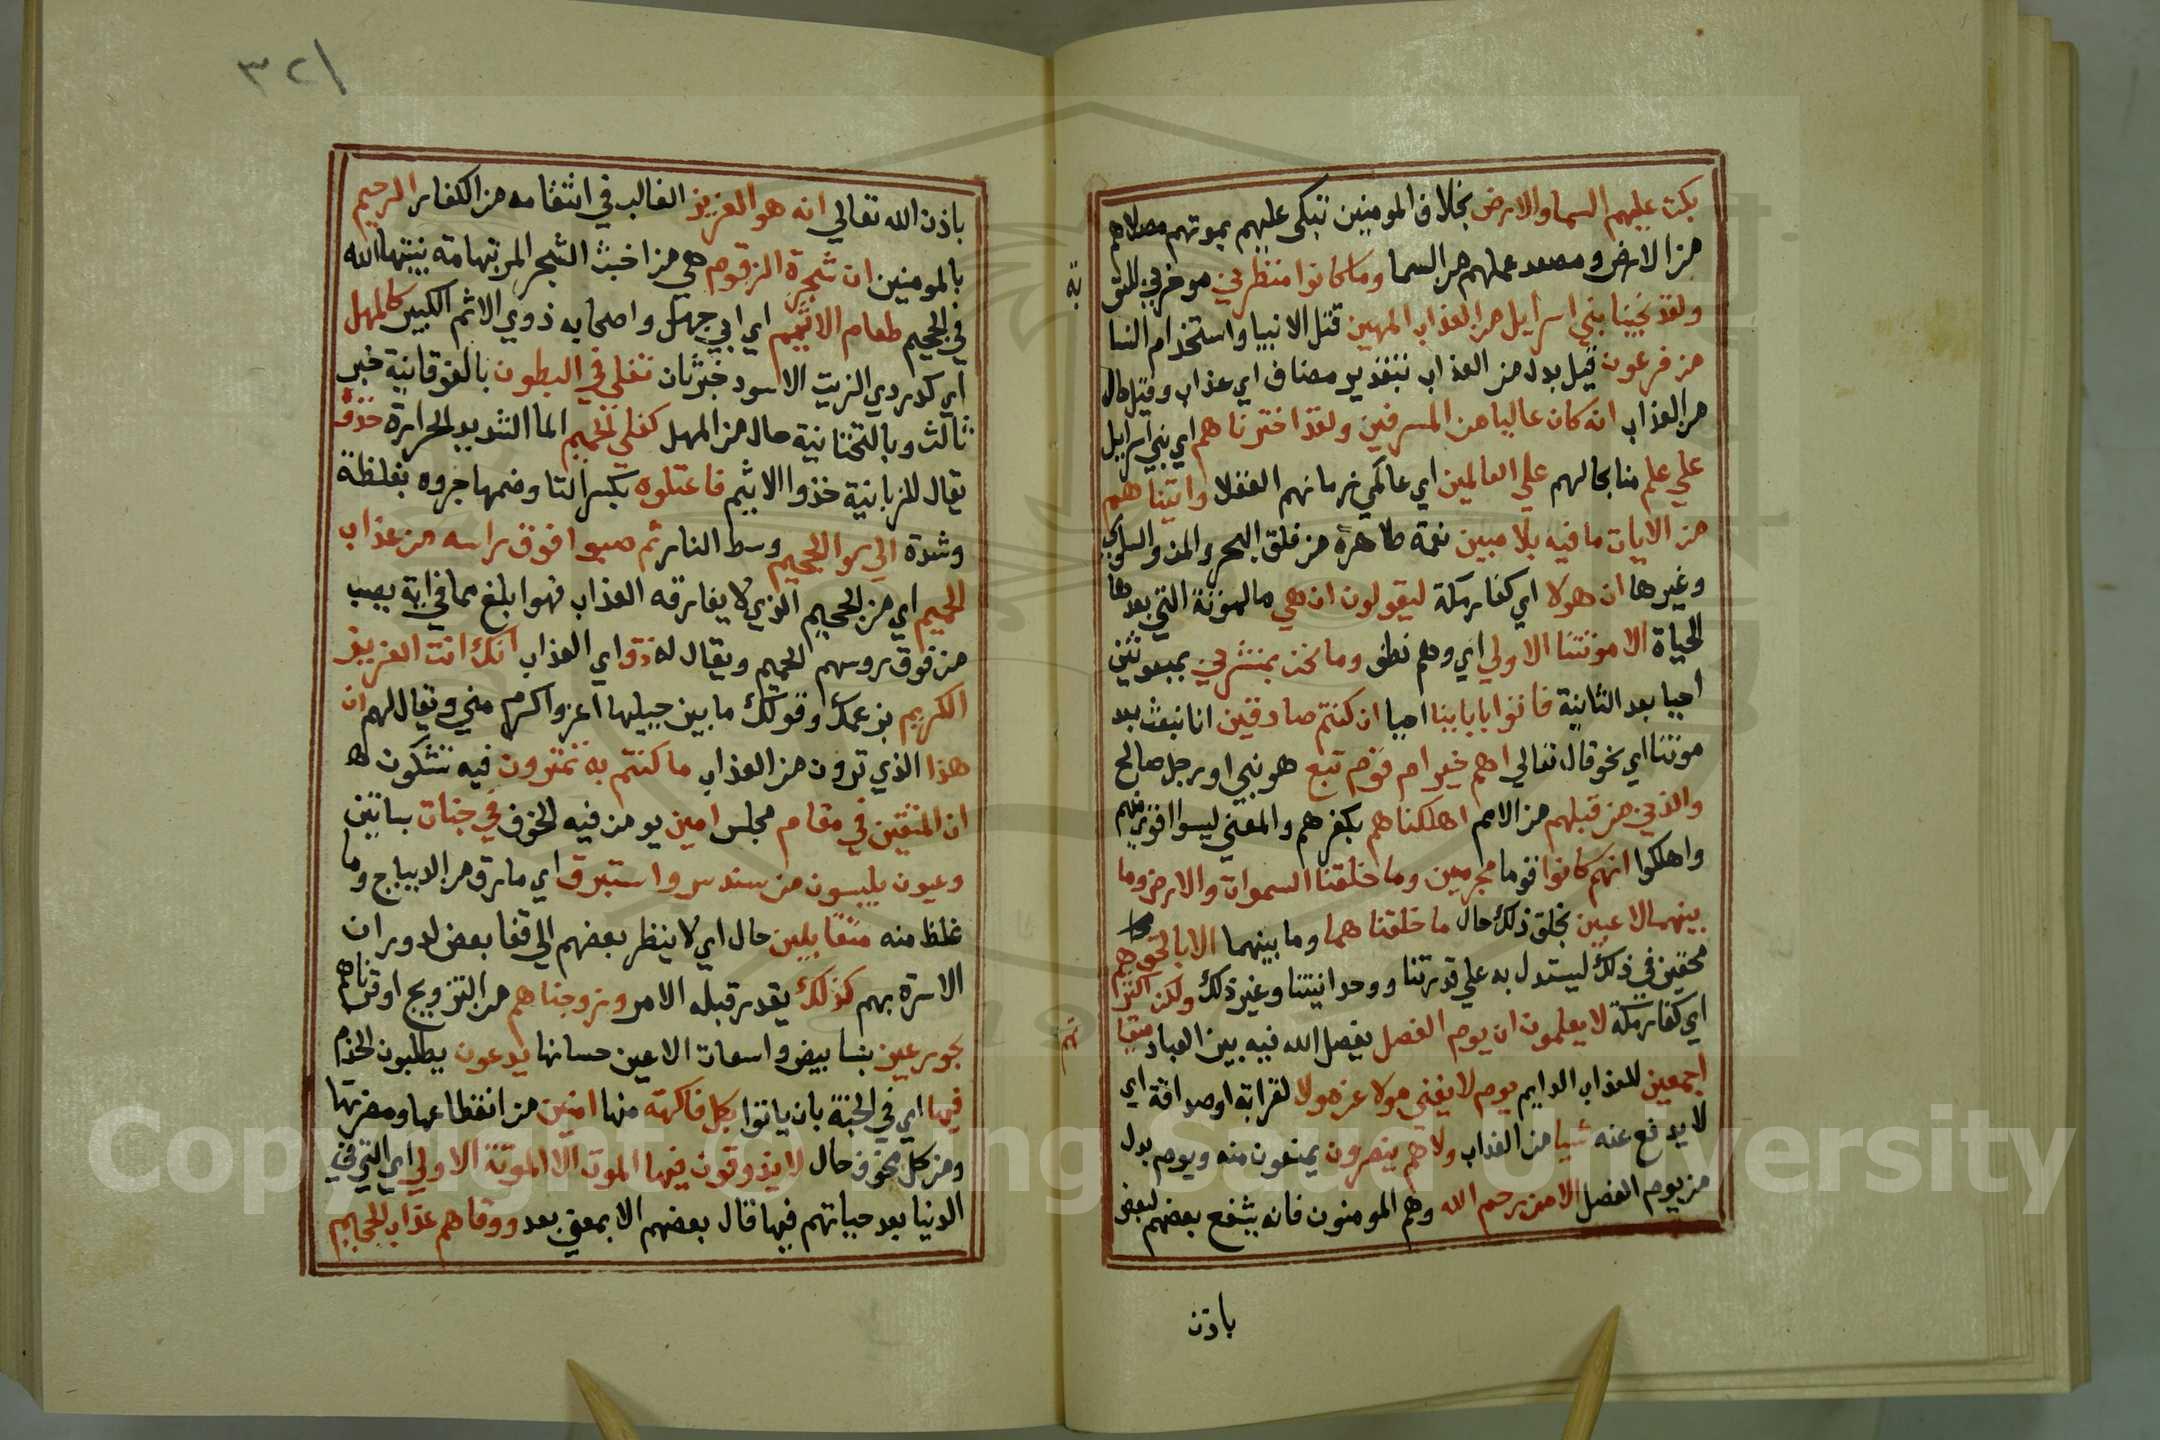 بكت عليهم السما والارض بخلاف المومنين تبكي عليهم بموتهم مصلاهم
من الارض ومصعد عملهم من السما وما كانوا منظرين موخرين للتو
بة
ولقد نجينا بني اسرايل من العذاب المهين قتل الانبيا واستخدام النسا
من فرعون قيل بدل من العذاب بتقدير مضاف اي عذاب وقيل حال
من العذاب انه كان عاليا من المسرفين ولقد اخترناهم اي بني اسرايل
علي علم منا بحالهم علي العالمين اي عالمي زمانهم العقلا واتيناهم
من الايات ما فيه بلا مبين نعمة ظاهرة من فلق البحر والمن والسلوي
وغيرها ان هولا اي كفار مكة ليقولون ان هي ما الموتة التي بعدها
الحياة الا موتتنا الاولي اي وهم نطف وما نحن بمنشرين بمبعوثين
احيا بعد الثانية فاتوا باباينا احيا ان كنتم صادقين انا نبعث بعد
موتتنا اي نحو قال تعالي اهم خير ام قوم تبع هو نبي او رجل صالح
والذين من قبلهم من الامم اهلكناهم بكفرهم والمعني ليسوا اقوي منهم
واهلكوا انهم كانوا قوما مجرمين وما خلقنا السموات والارض وما
بينهما لاعبين بخلق ذلك حال ما خلقناهما وما بينهما الا بالحق اي
محقين في ذلك ليستدل به علي قدرتنا ووحدانيتنا وغير ذلك ولكن اكثرهم
اي كفار مكة لا يعلمون ان يوم الفصل يفصل الله فيه بين العباد ميقا
تهم
اجمعين للعذاب الدايم يوم لا يغني مولا عن مولا لقرابة او صداقة اي
لا يدفع عنه شيا من العذاب ولا هم ينصرون يمنعون منه ويوم بدل
من يوم الفصل الا من رحم الله وهم المومنون فانه يشفع بعضهم لبعض
باذن
٣٢١
باذن الله تعالي انه هو العزيز الغالب في انتقامه من الكفار الرحيم
بالمومنين ان شجرة الزقوم هي من اخبث الشجر المر بتهامة ينبتها الله
في الجحيم طعام الاثيم اي ابي جهل واصحابه ذوي الاثم الكبير كالمهل
اي كدردي الزيت الاسود خبر ثان تغلي في البطون بالفوقانية خبر
ثالث وبالتحتانية حال من المهل كغلي الحميم الما الشديد الحرارة خذوه
يقال للزبانية خذوا الاثيم فاعتلوه بكسر التا وضمها جروه بغلظة
وشدة الي سوا الجحيم وسط النار ثم صبوا فوق راسه من عذاب
الحميم اي من الجحيم الذي لا يفارقه العذاب فهو ابلغ مما في اية يصب
من فوق روسهم الحميم ويقال له ذق اي العذاب انك انت العزيز
الكريم بزعمك وقولك ما بين جبليها اعز واكرم مني ويقال لهم ان
هذا الذي ترون من العذاب ما كنتم به تمترون فيه تشكون
ان المتقين في مقام مجلس امين يومن فيه الخوف في جنات بساتين
وعيون يلبسون من سندس واستبرق اي ما رق من الديباج وما
غلظ منه متقابلين حال اي لا ينظر بعضهم الي قفا بعض لدوران
الاسرة بهم كذلك يقدر قبله الامر وزوجناهم من التزويج او قرناهم
بحور عين بنسا بيض واسعات الاعين حسانها يدعون يطلبون الخدم
فيها اي في الجنة بان ياتوا بكل فاكهة منها امنين من انقطاعها ومضرتها
ومن كل مخوف حال لا يذوقون فيها الموت الا الموتة الاولي اي التي في
الدنيا بعد حياتهم فيها قال بعضهم الا بمعني بعد ووقاهم عذاب الجحيم
Copyright © King Saud University